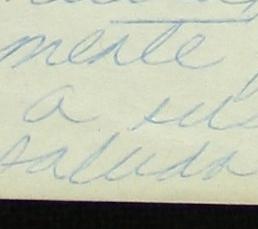 mente
a sus
saluda